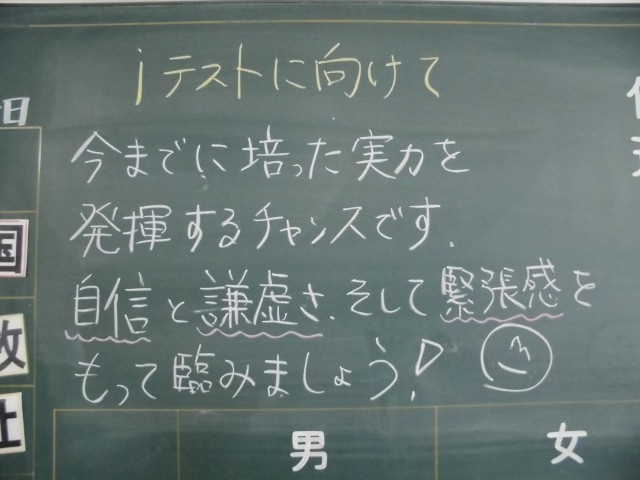 iテストに向けて
今までに培った実力を
発揮するチャンスです.
自信と謙虚さ、そして緊張感を
もって臨みましょう!
日
国
社
男
女